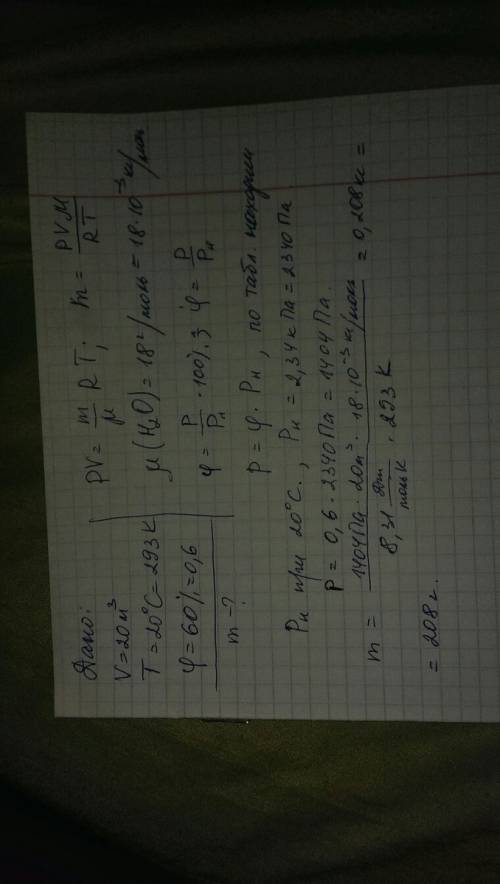 Дано:
V = 20 м³
T = 20°C = 293 K
φ = 60% = 0,6
m - ?
PV = m/μ RT; m = PVM/RT
μ(H₂O) = 18 г/моль = 18·10⁻³ кг/моль
φ = P/Pн · 100%; φ = P/Pн
P = φ · Pн, по табл. находим
Pн при 20°C., Pн = 2,34 кПа = 2340 Па
P = 0,6 · 2340 Па = 1404 Па.
m = 1404 Па · 20 м³ · 18·10⁻³ кг/моль / 8,31 Дж/моль К · 293 К = 0,208 кг =
= 208 г.